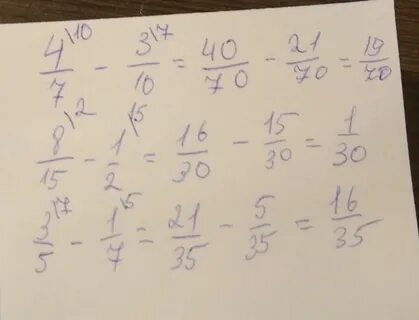 4\10/7 - 3\7/10 = 40/70 - 21/70 = 19/70
8\2/15 - 1\15/2 = 16/30 - 15/30 = 1/30
3\7/5 - 1\5/7 = 21/35 - 5/35 = 16/35